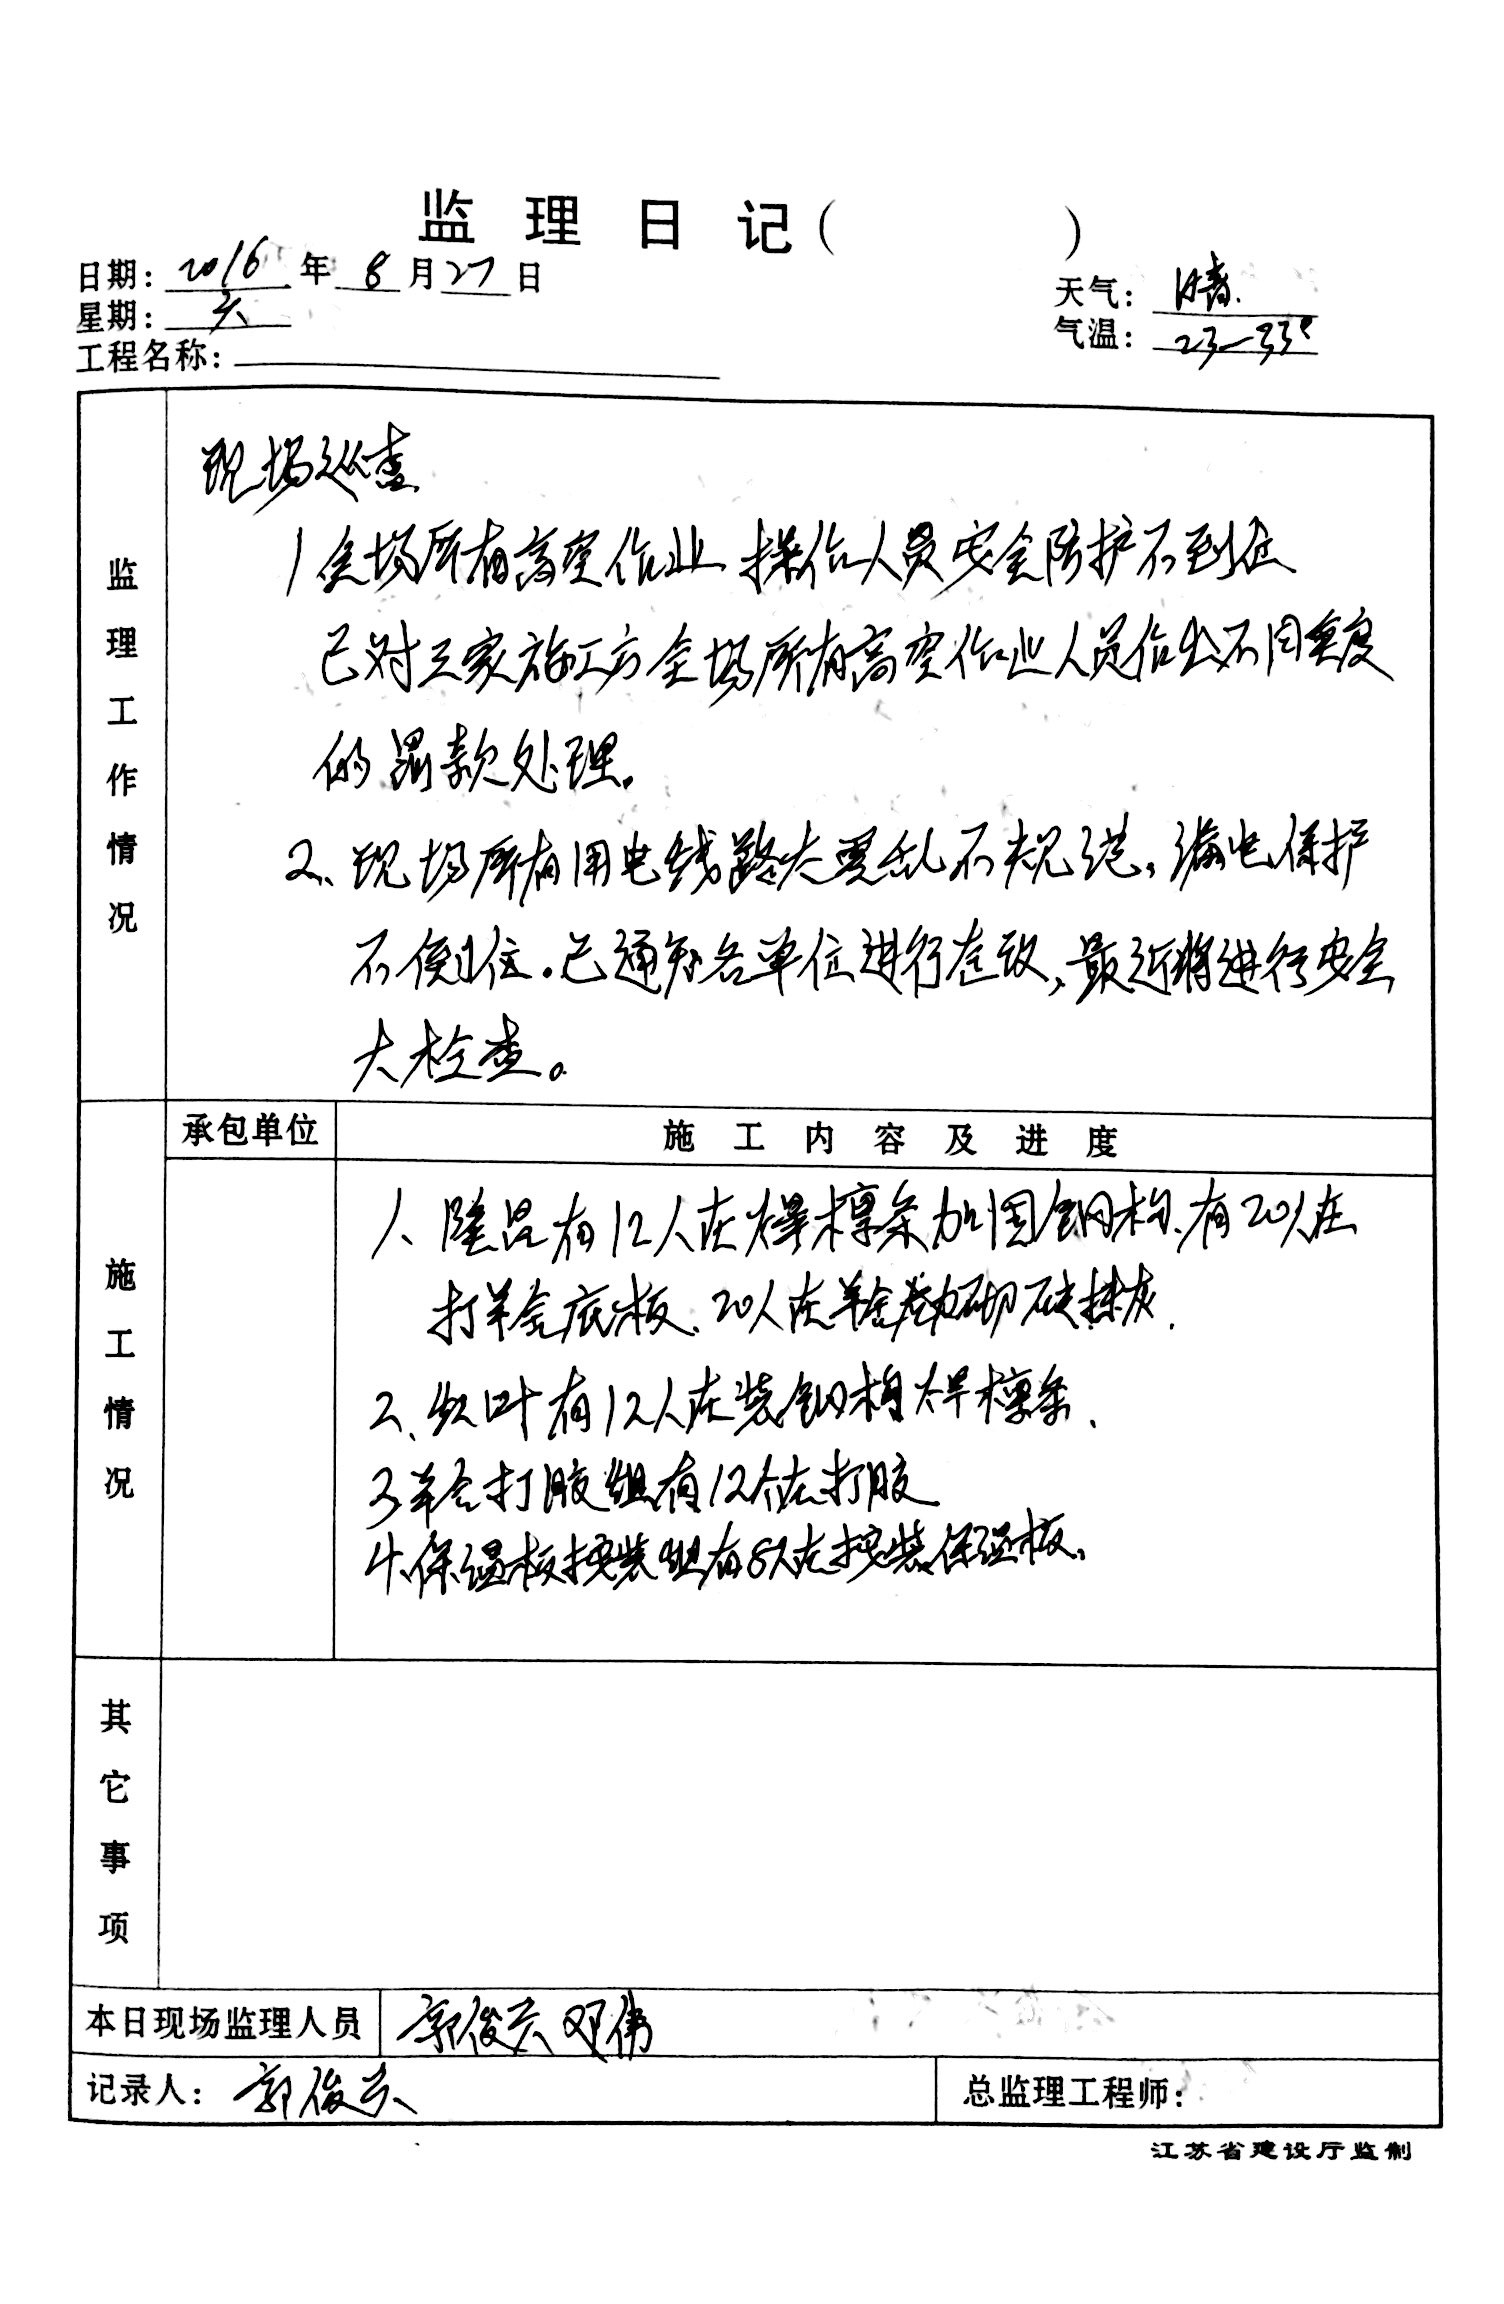 监理日记( )
日期: 2016 年 8 月 27 日
天气: 晴.
星期: 六
气温: 23—33°
工程名称:
监理工作情况
现场巡查
1 全场所有高空作业 操作人员安全防护不到位
已对三家施工方全场所有高空作业人员作出不同重度
的罚款处理。
2、现场所有用电线路太零乱不规范,漏电保护
不倒位。已通知各单位进行整改,最近将进行安全
大检查。
承包单位
施工内容及进度
施工情况
1、隆昆有12人在焊檩条加固钢构、有20人在
打羊舍底板、20人在羊舍砌砖抹灰.
2、红叶有12人在装钢构焊檩条、
3、羊舍打胶组有12个在打胶
4、保温板按装组有8人在按装保温板、
其它事项
本日现场监理人员 郭俊 邓伟
记录人: 郭俊
总监理工程师:
江苏省建设厅监制